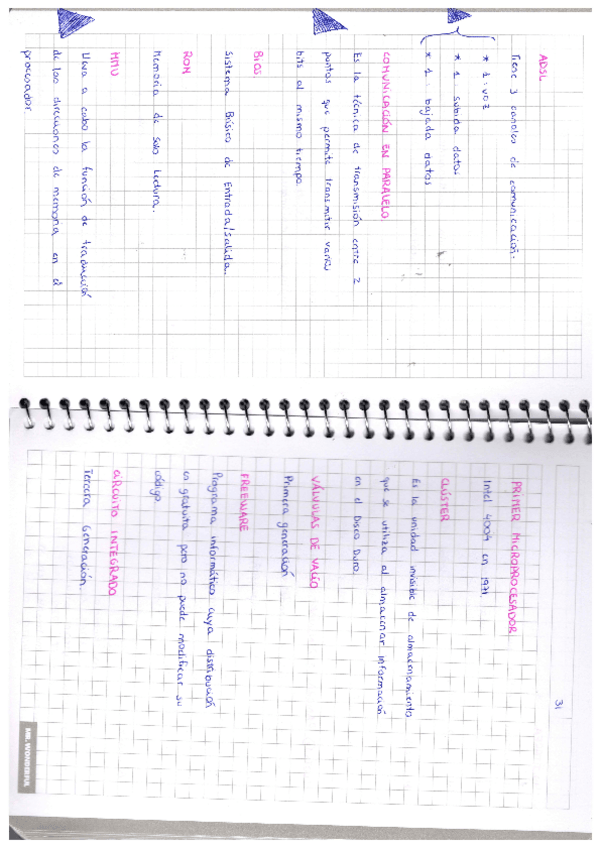 ADSL
Tiene 3 canales de comunicación.
* 1: voz
* 1: subida datos
* 1: bajada datos
COMUNICACIÓN EN PARALELO
Es la técnica de transmisión entre 2
puntos que permite transmitir varios
bits al mismo tiempo.
BIOS.
Sistema Básico de Entrada/salida.
ROM
Memoria de solo lectura.
MMU
Lleva a cabo la función de traducción
de las direcciones de memoria en el
procesador.
31
PRIMER MICROPROCESADOR
Intel 4004 en 1971
CLÚSTER
Es la unidad de almacenamiento
que se utiliza al almacenar información
en el Disco Duro.
VÁLVULAS DE VACÍO
Primera generación
FREEWARE
Programa informático cuya distribución
es gratuita pero no puede modificar su
código.
CIRCUITO INTEGRADO
Tercera Generación.
MR. WONDERFUL